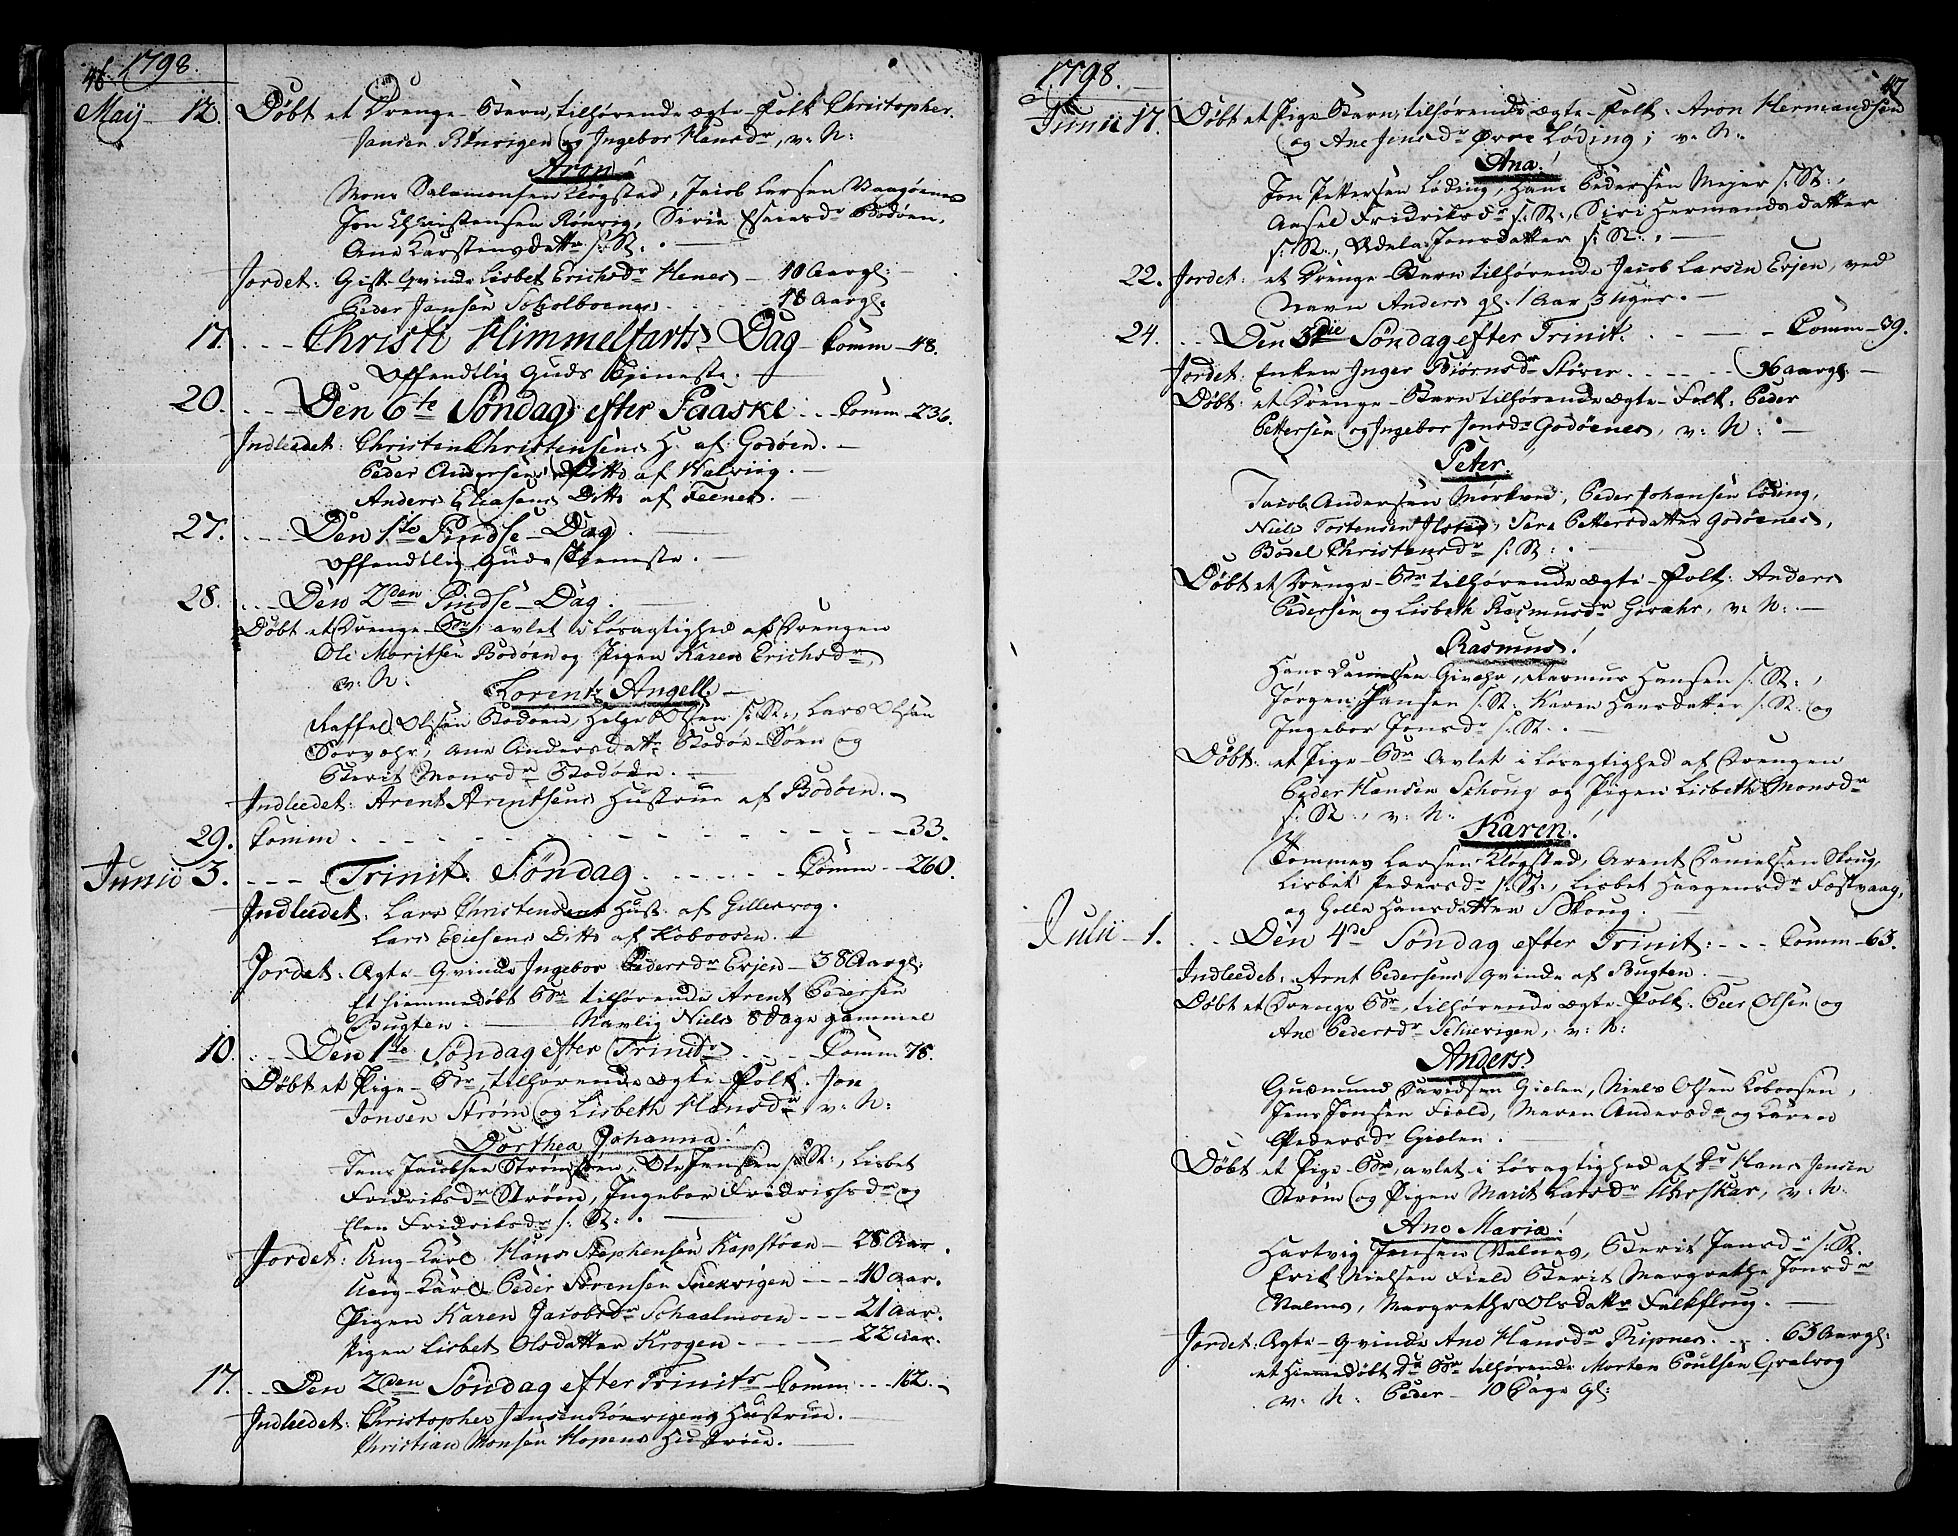 46. 1798.
Maÿ 12. Døbt et Drenge-Barn, tilhørende ægte-Folk Christopher
Jansen Rönvigen og Ingebor Hansdr, v: N:
Aron!
Mons Salamonsen Kløgstad, Jacob Larsen Vaagøenes
Jon Christensen Rönvig, Sirie Esaiasdr Bodøen,
Ane Karstensdattr s: St: . —
Jordet: Gift Qvinde Lisbet Erichsdr Henes — 40 Aar gl:
Peder Jansen Skolboenes . . . . 48 Aar gl:
17. . . . Christi Himmelfarts Dag — Comm — 48.
Offendtlig Guds Tieneste. —
20. . . . Den 6te Søndag efter Paaske . . . Comm — 236.
Indleedet: Christen Christensens H. af Godøen. —
Peder Andersens Ditto af Halvrig. —
Anders Eliasens Ditto af Feenes. —
27. . . . Den 1ste Pindse-Dag. —
Offendtlig Guds Tieneste. —
28. . . . Den 2den Pindse-Dag. —
Døbt et Drenge-Br, avlet i Løsagtighed af Drengen
Ole Moritsen Bodøen og Pigen Karen Erichsdr,
v: N:
Lorentz Angell. —
Raffel Olsen Bodøen, Helge Olsen s: St:, Lars Olsen
Sorvahr, Ane Andersdattr Bodøe-Søen og
Berit Monsdr Bodøen. —
Indleedet: Arent Arentsens Hustrue af Bodøen. —
29. Comm — — — 33.
Junii 3. . . . Trinit. Søndag . . . . . Comm — 260.
Indleedet: Lars Christensens Hust: af Gillesvog.
Lars Eliesens Ditto af Koboosen. —
Jordet: Ægte-Qvinde Ingebor Pedersdr Evjen — 38 Aar gl:
Et hiemmedøbt Br tilhørende Arent Pedersen
Bugten. — Navlig Niels 8 Dage gammel
10. . . . Den 1ste Søndag efter Trinits . . . Comm 78.
Døbt et Pige-Br, tilhørende ægte-Folk: Jon
Jonsen Strøm og Lisbeth Hansdr, v: N:
Dorthea Johanna!
Jens Jacobsen Strömsen, Ole Jensen s: St:, Lisbet
Fridriksdr Strøm, Ingebor Fridrichsdr og
Elen Fridriksdr s: St: . —
Jordet: Ung-Karl Hans Stephensen Kapstøen — 28 Aar.
Ung-Karl Peder Sørensen Snekvigen — — 40 Aar.
Pigen Karen Jacobsdr Schaalmoen — — 21 Aar.
Pigen Lisbet Olsdatter Krogen — — — 22 Aar.
17. . . . Den 2den Søndag efter Trinits — Comm — 162. —
Indleedet: Christopher Jansen Rönvigens Hustrue. —
Christian Monsen Hopens Hustrue. —
1798. 47
Junii 17. Døbt et Pige-Barn, tilhørende ægte-Folk: Aron Hermandsen
og Ane Jensdr Øvre Løding; v: N:
Ana!
Jon Pettersen Løding, Hans Pedersen Mejer s: St:,
Axsel Fridriksdr s: St:, Siri Hermandsdatter
s: St:, Adela Jonsdatter s: St: . —
22. Jordet: et Drenge-Barn tilhørende Jacob Larsen Evjen, ved
Navn Anders gl: 1 Aar 3 Uger. —
24. . . Den 3die Søndag efter Trinit. . . — Comm — 39.
Jordet: Enken Inger Biørnsdr Støver . . . . 96 Aar gl: —
Døbt: et Drenge-Barn tilhørende ægte-Folk: Peder
Pettersen og Ingebor Jonsdr Godøenes, v: N: —
Peter.
Jacob Andersen Mörkved, Peder Johansen Löding,
Niels Tostensen Ilstad, Sire Pettersdatter Godøenes,
Bodel Christensdr s: St: . —
Døbt et Drenge-Br tilhørende ægte-Folk: Anders
Pedersen og Lisbeth Rasmusdr Givahr, v: N: —
Rasmus!
Hans Danielsen Givahr, Rasmus Hansen s: St:,
Jørgen Hansen s: St: Karen Hansdatter s: St: og
Ingebor Jonsdr s: St: . —
Døbt: et Pige-Br Avlet i Løsagtighed af Drengen
Peder Hansen Schoug og Pigen Lisbeth Monsdr
s: St:, v: N:
Karen!
Tommes Larsen Kløgstad, Arent Danielsen Skoug,
Lisbet Pedersdr s: St:, Lisbet Haagensdr Fastvaag,
og Golla Hansdatter Skoug. —
Julii — 1. . . Den 4de Søndag efter Trinit: — — Comm — 63.
Indleedet: Arnt Pedersens Qvinde af Bugten. —
Døbt et Drenge Br, tilhørende ægte-Folk: Peer Olsen og
Ane Pedersdr Schievigen, v: N:
Anders!
Gudmund Davidsen Gielen, Niels Olsen Koboosen,
Jens Jonsen Field, Maren Andersdr og Karen
Pedersdr Gielen. —
Døbt et Pige-Br, avlet i Løsagtighed af Dr Hans Jensen
Strøm og Pigen Marit Larsdr Uhrskar, v: N:
Ane Maria!
Hartvig Jensen Valnes, Berit Jansdr s: St:
Erik Nielsen Field Berit Margrethe Jonsdr
Valnes, Margrethe Olsdattr Falkfloug. —
Jordet: Ægte-Qvinde Ane Hansdr Ripnes. . . 63 Aar gl:
et Hiemedøbt Dr Br tilhørende Morten Poulsen Qvalvog
v: N: Peder — 10 Dage gl: